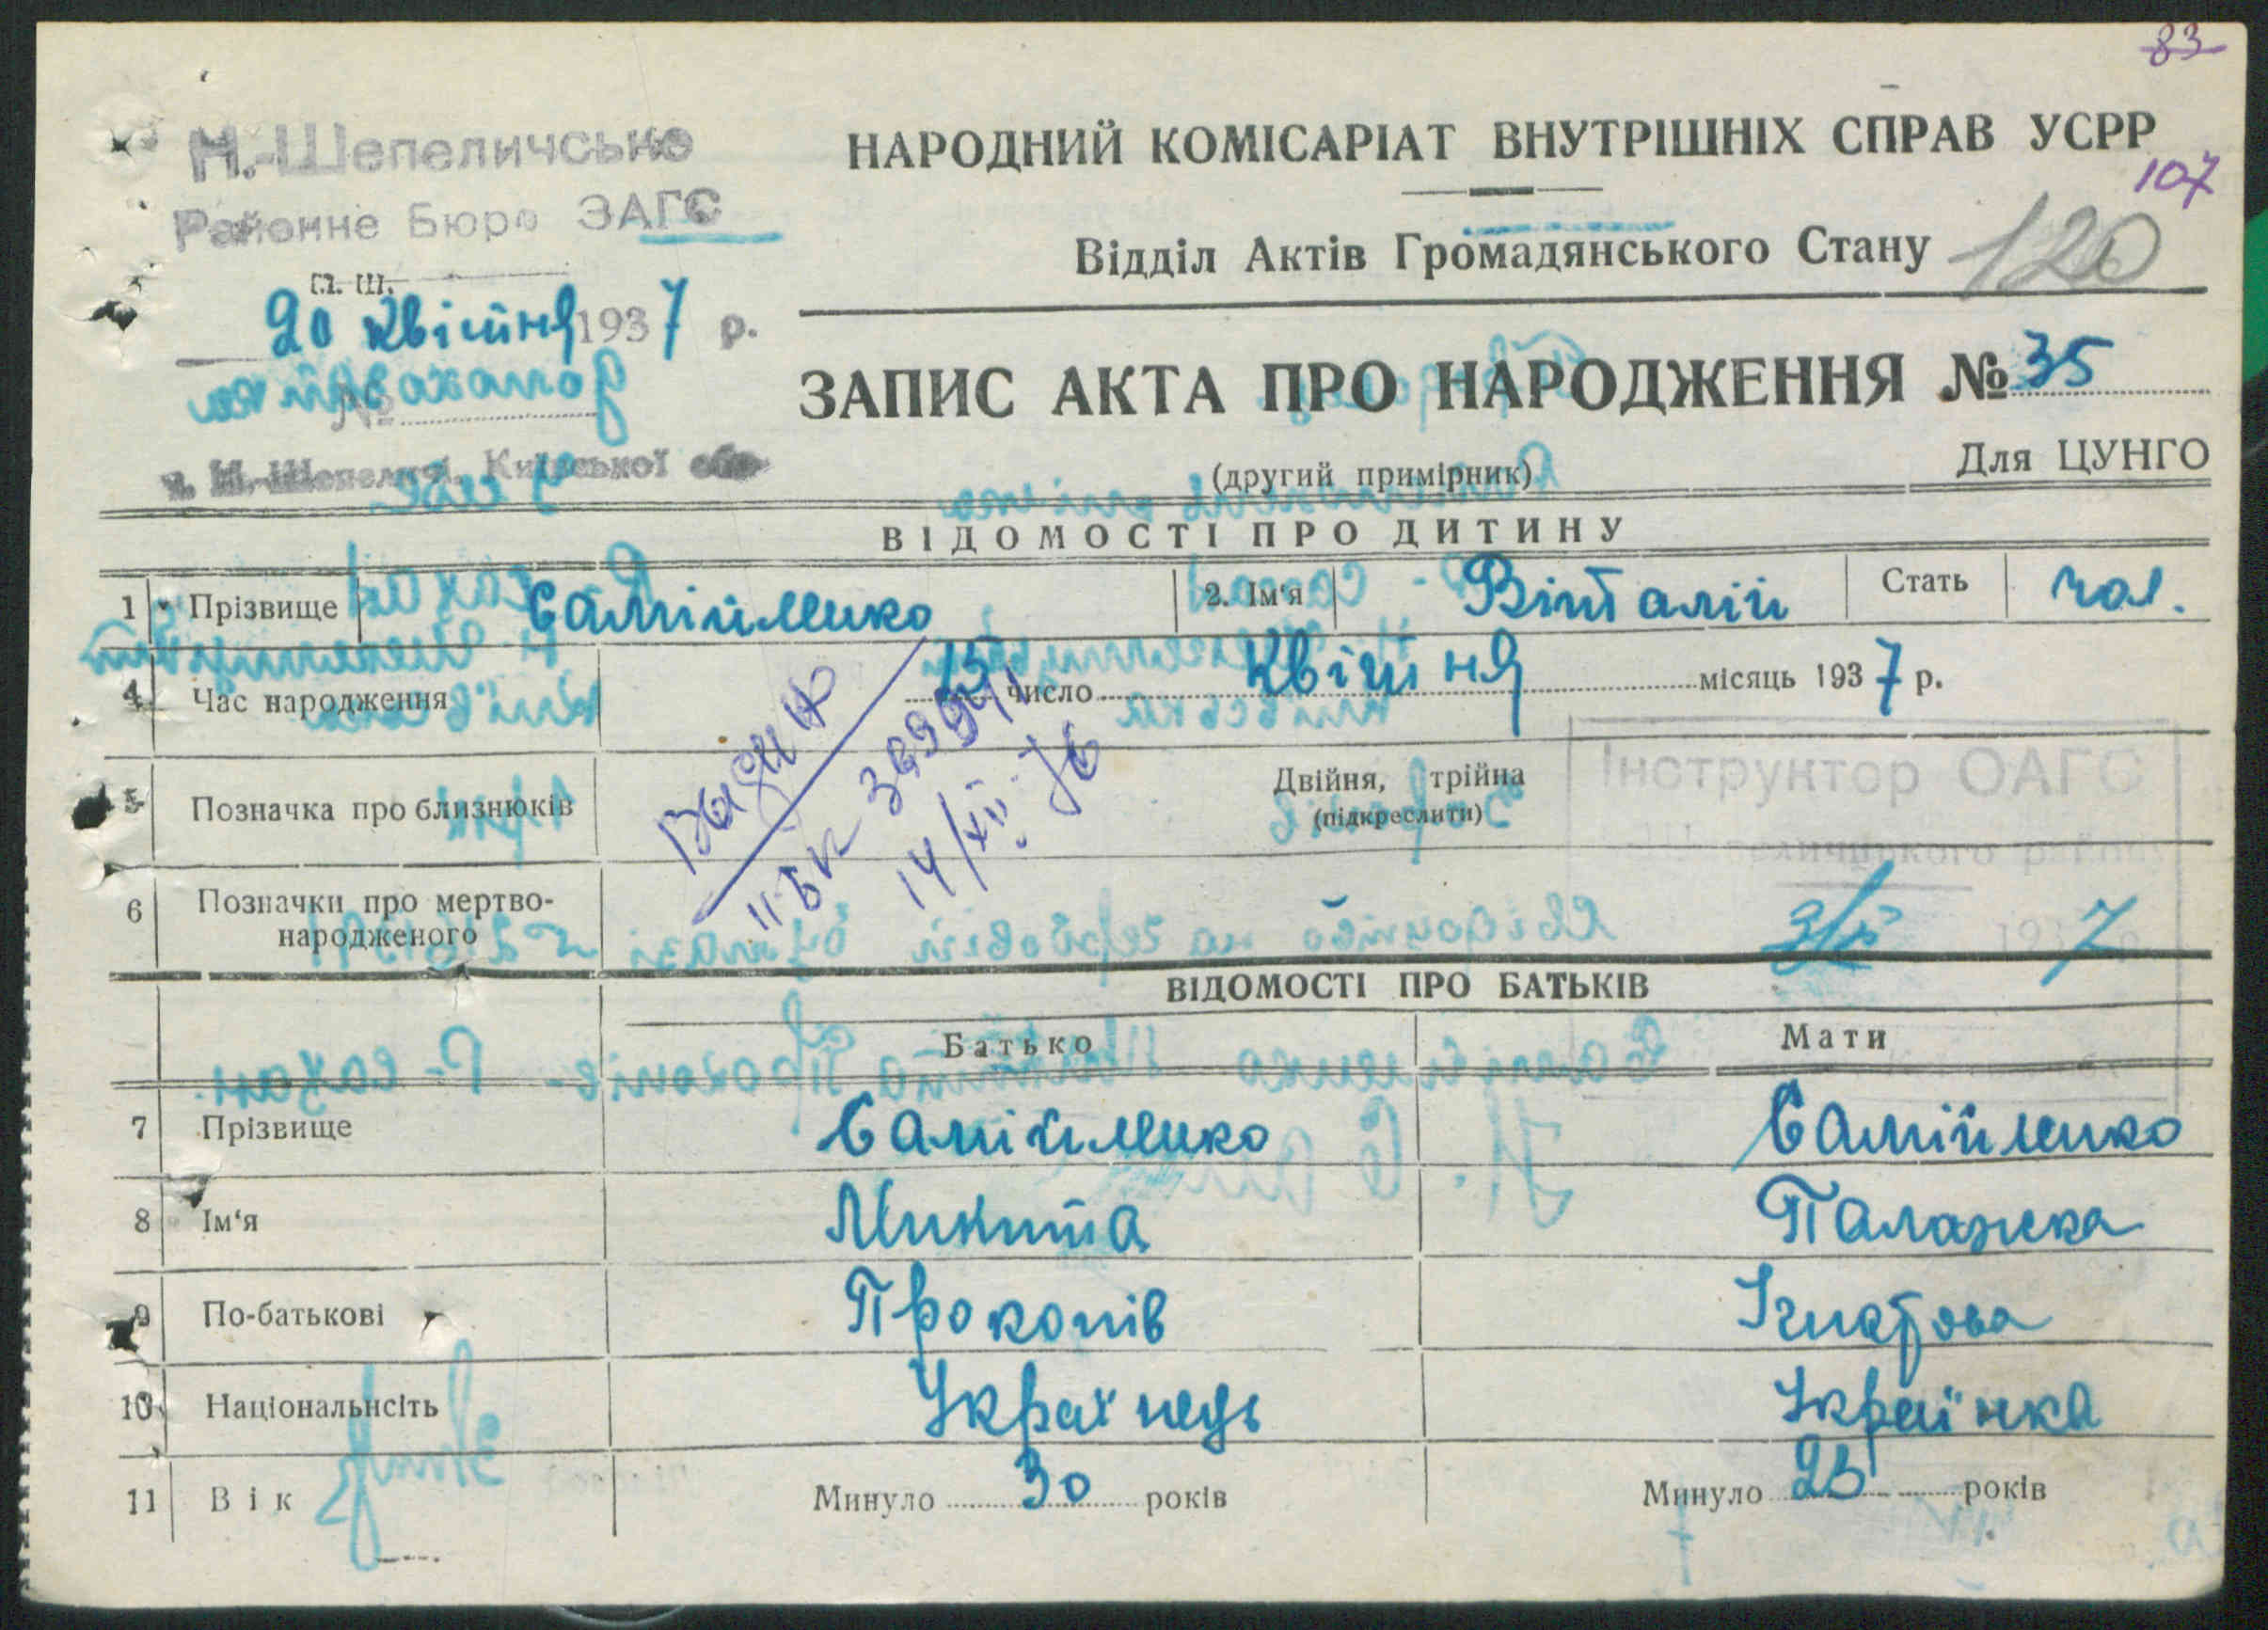 83
Н.-Шепеличське
Районне Бюро ЗАГС
НАРОДНИЙ КОМІСАРІАТ ВНУТРІШНІХ СПРАВ УСРР
107
Відділ Актів Громадянського Стану
120
20 квітня 1937 р.
№
ЗАПИС АКТА ПРО НАРОДЖЕННЯ № 35
Київської
(другий примірник)
Для ЦУНГО
ВІДОМОСТІ ПРО ДИТИНУ
1 Прізвище Самійленко 2. Ім'я Віталій Стать чол.
4 Час народження 15 число квітня місяць 1937 р.
5 Позначка про близнюків Двійня, трійна
(підкреслити)
Інструктор ОАГС
14/XII
6 Позначки про мертво-
народженого
1937
ВІДОМОСТІ ПРО БАТЬКІВ
Батько Мати
7 Прізвище Самійленко Самійленко
8 Ім'я Микита Палажка
9 По-батькові Прокопів
10 Національнсіть Українець Українка
11 Вік Минуло 30 років Минуло 23 років